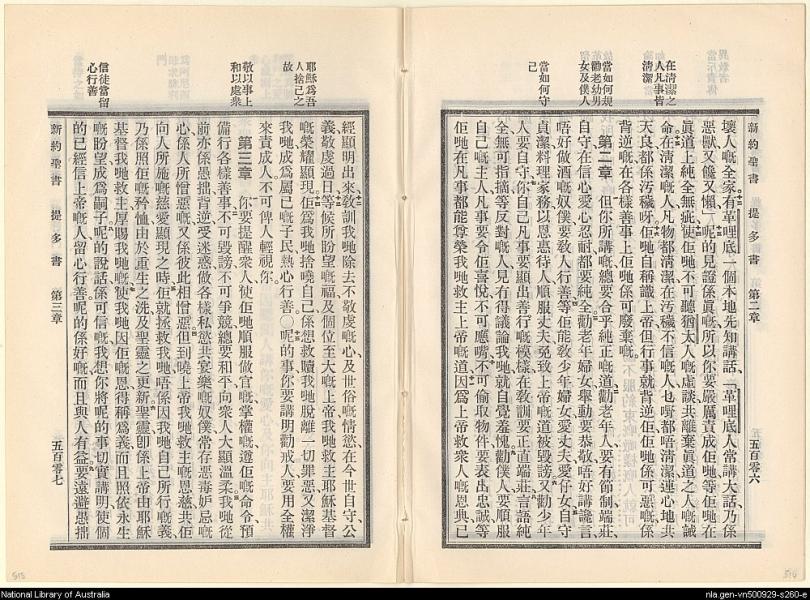 新約聖書 提多書 第二章 五百零六
在清潔之
人凡事皆
清潔
當如何規
勸老幼男
女及僕人
當如何守
己
壞人嘅全家有革哩底一個本地先知講話「革哩底人常講大話乃係
惡獸又饞又懶」呢的見證係眞嘅所以你要嚴厲責成佢哋等佢哋在
眞道上純全無疵使佢哋不可聽猶太人嘅虛談共離棄眞道之人嘅誡
命在清潔嘅人凡物都清潔在污穢不信嘅人乜嘢都唔清潔連心地共
天良都係污穢呀佢哋自稱識上帝但行事就背逆佢佢哋係可惡嘅係
背逆嘅在各樣善事上佢哋係可廢棄嘅
第二章 但你所講嘅總要合乎純正嘅道勸老年人要有節制端莊
自守在信心愛心忍耐都要純全勸老年婦女舉動要恭敬唔好講讒言
唔好做酒嘅奴僕要敎人行善等佢能敎少年婦女愛丈夫愛仔女自守
貞潔料理家務以恩惠待人順服丈夫免致上帝嘅道被毀謗又勸少年
人要自守你自己凡事要顯出善行嘅模樣在敎訓要正直端莊言語純
全無可指摘等反對嘅人見冇得議論我哋就自覺羞愧勸僕人要順服
自己嘅主人凡事要令佢喜悅不可應嘴不可偷取物件要表出忠誠等
佢哋在凡事都能尊榮我哋救主上帝嘅道因爲上帝救衆人嘅恩典已
耶穌爲吾
人捨己之
故
敬以事上
和以處衆
信徒當留
心行善
經顯明出來敎訓我哋除去不敬虔嘅心及世俗嘅情慾在今世自守公
義敬虔過日等候所盼望嘅福及個位至大嘅上帝我哋救主耶穌基督
嘅榮耀顯現佢爲我哋捨曉自己係想救贖我哋脫離一切罪惡又潔淨
我哋成爲屬己嘅子民熱心行善〇呢的事你要講明勸戒人要用全權
來責成人不可俾人輕視你
第三章 你要提醒衆人使佢哋順服做官嘅掌權嘅遵佢嘅命令預
備行各樣善事不可毀謗不可爭競總要和平向衆人大顯溫柔我哋從
前亦係愚拙背逆受迷惑做各樣私慾共宴樂嘅奴僕常存惡毒妒忌嘅
心係人所憎惡嘅又係彼此相憎惡但到曉上帝我哋救主嘅恩慈共佢
向人所施嘅慈愛顯現之時佢就拯救我哋唔係因我哋自己所行嘅義
乃係照佢嘅矜恤由於重生之洗及聖靈之更新聖靈卽係上帝由耶穌
基督我哋救主厚賜我哋嘅使我哋因佢嘅恩得稱爲義而且照依永生
嘅盼望成爲嗣子呢的說話係可信嘅我想你將呢的事切實講明使個
的已經信上帝嘅人留心行善呢的係好嘅而且與人有益要遠避愚拙
新約聖書 提多書 第三章 五百零七
515
514
National Library of Australia
nla.gen-vn500929-s260-e